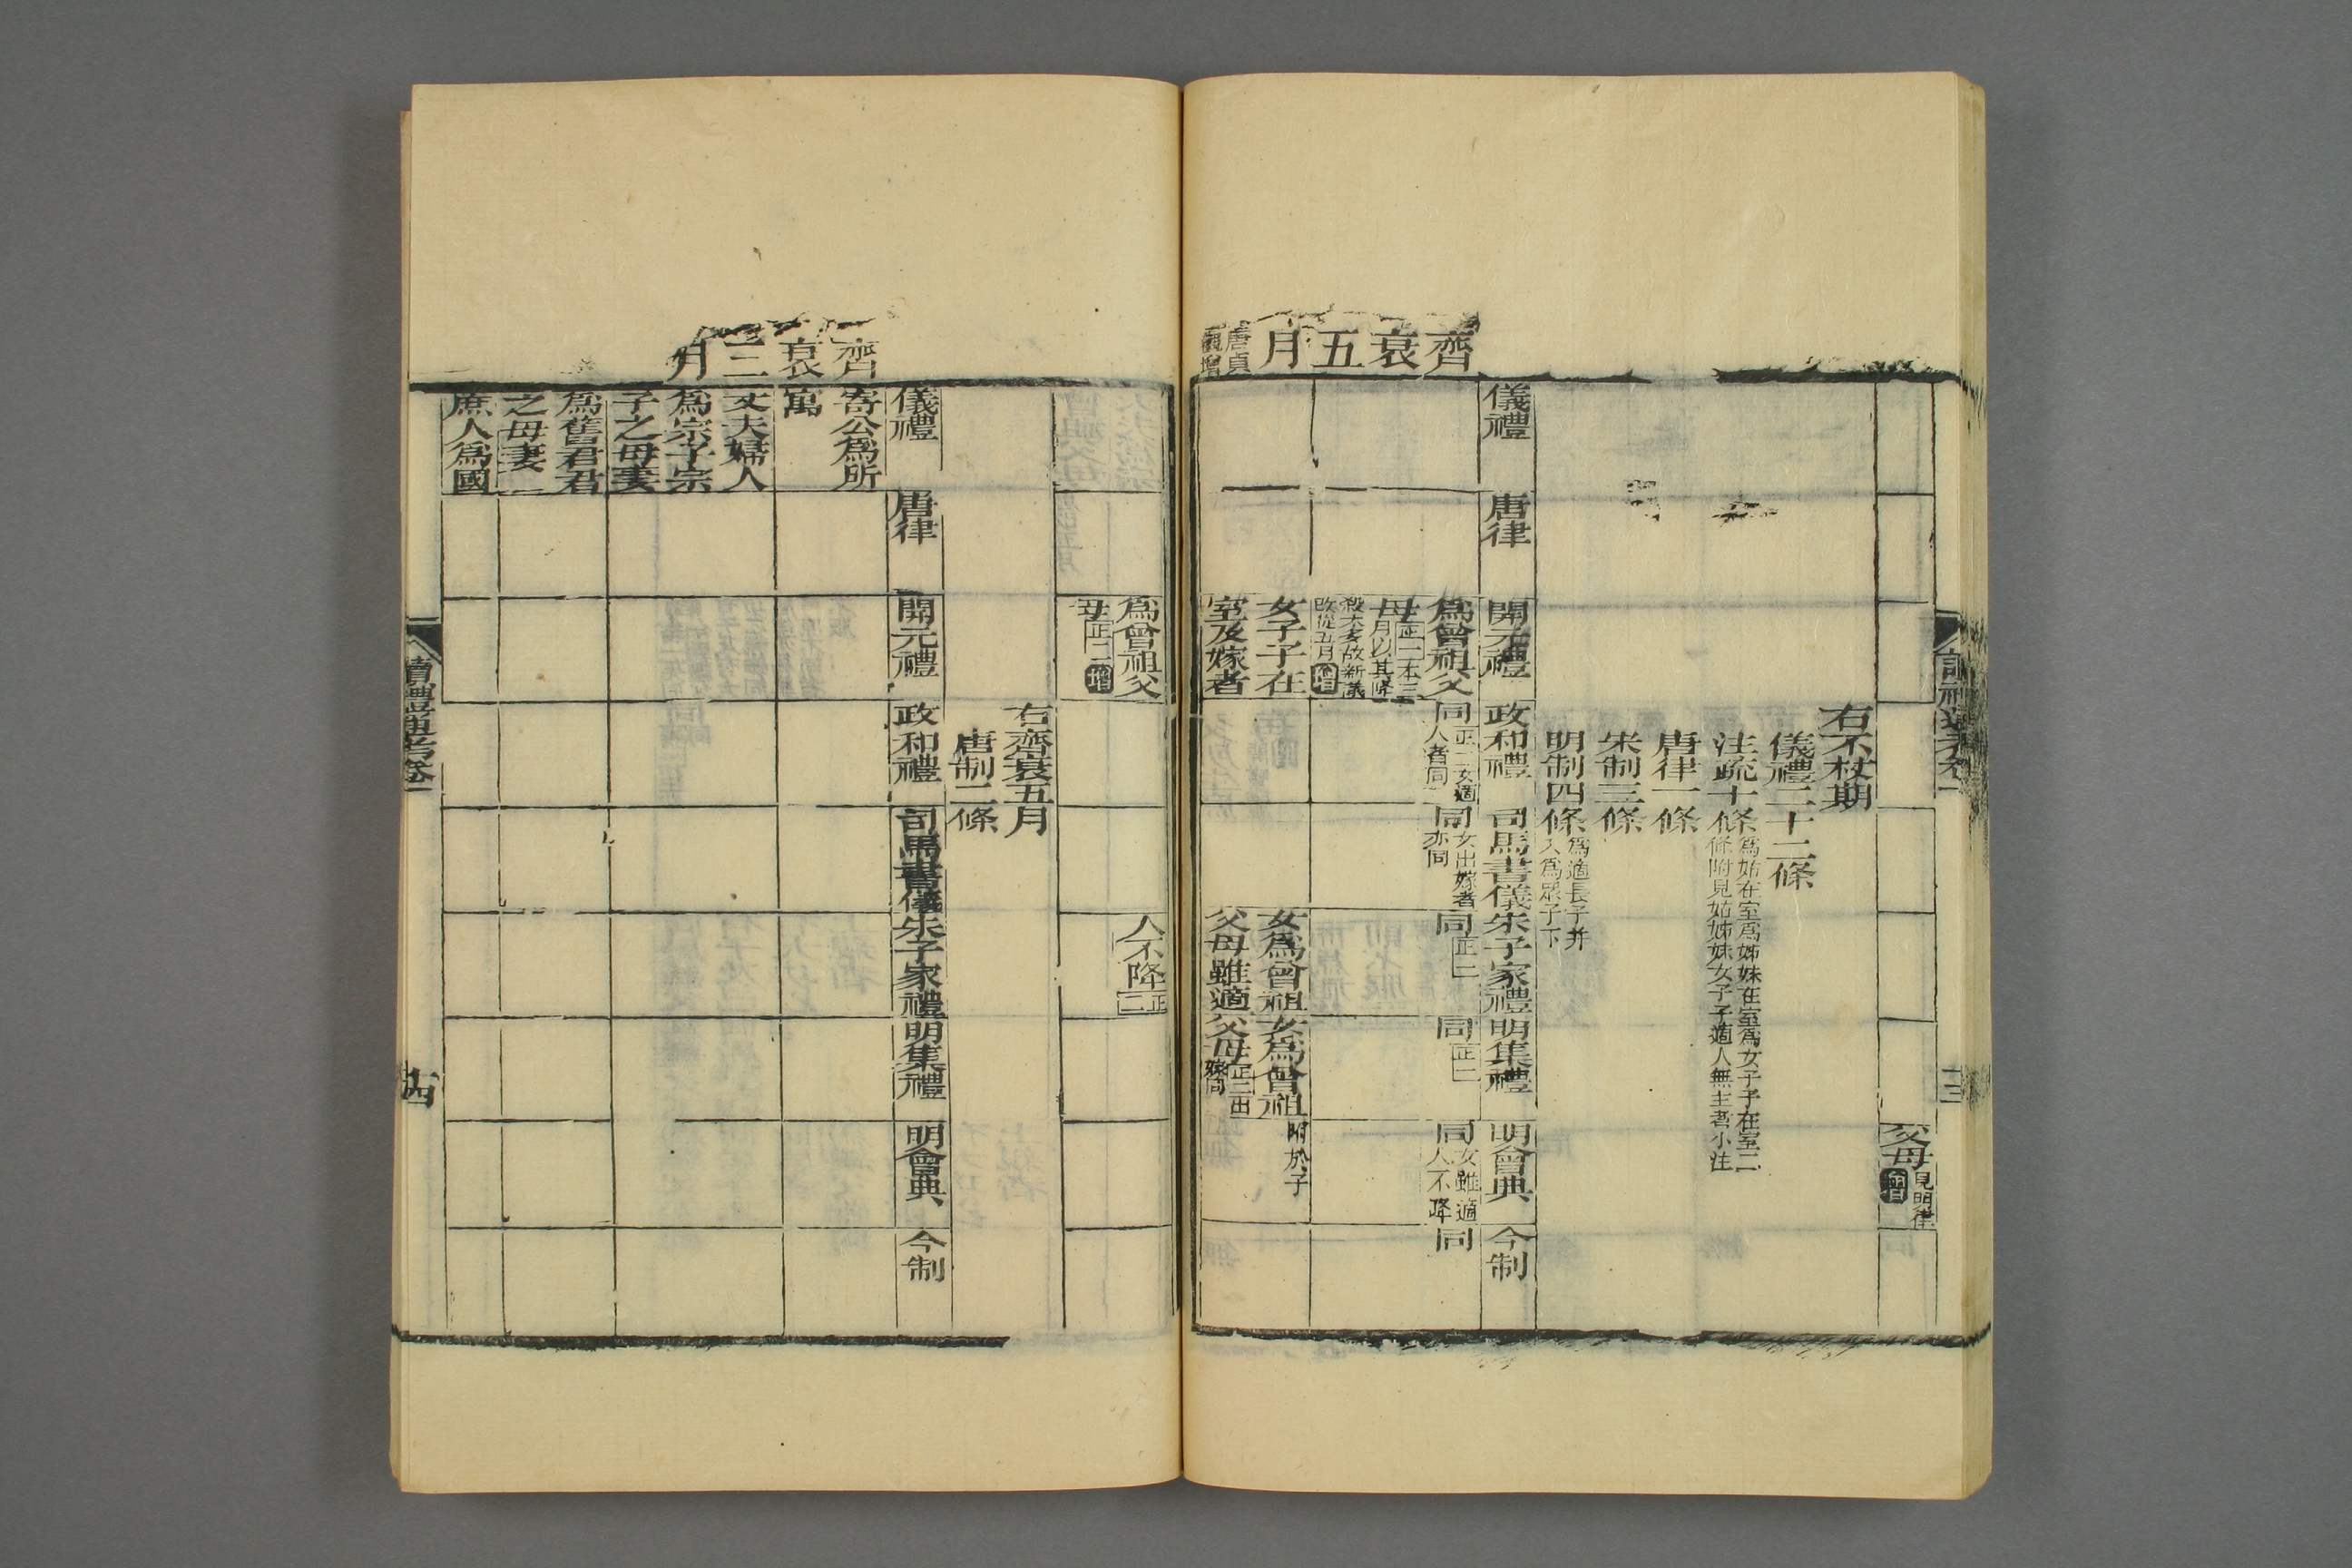 父母見明律增
右不杖期
儀禮二十二條
注疏十條為姑在室為姊妹在室為女子子在室二
條附見姑姊妹女子子適人無主者小注
唐律一條
宋制三條
明制四條為適長子并
又為眾子下
齊衰五月
唐貞
觀增
儀禮
唐律
開元禮
政和禮
司馬書儀
朱子家禮
明集禮
明會典
今制
為曾祖父
母正二本三
月以其降
殺太多故新議
改從五月增
同正二女適
人者同
同女出嫁者
亦同
同正二
同正二
同女雖適
人不降
同
女子子在
室及嫁者
女為曾祖
父母雖適
女為曾祖
父母正二出
嫁同
附於子
為曾祖父
母正二增
人不降正
二
右齊衰五月
唐制二條
齊衰三月
儀禮
唐律
開元禮
政和禮
司馬書儀
朱子家禮
明集禮
明會典
今制
寄公為所
寓
丈夫婦人
為宗子宗
子之母妻
為舊君君
之母妻
庶人為國
讀禮通考卷一
十四